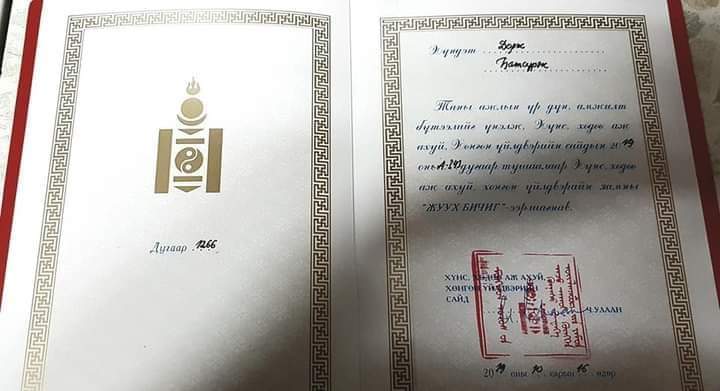 Дугаар 1266
Хүндэт Дорж
Батсүрж
Таны ажлын үр дүн, амжилт
бүтээлийг үнэлж, Хүнс, хөдөө аж
ахуй, Хөнгөн үйлдвэрийн сайдын 2019
оны дугаар тушаалаар Хүнс, хөдөө
аж ахуй, хөнгөн үйлдвэрийн яамны
"ЖУУХ БИЧИГ"-ээр шагнав.
ХҮНС, ХӨДӨӨ АЖ АХУЙ,
ХӨНГӨН ҮЙЛДВЭРИЙН
САЙД Ч.УЛААН
2019 оны 10 сарын 16 өдөр